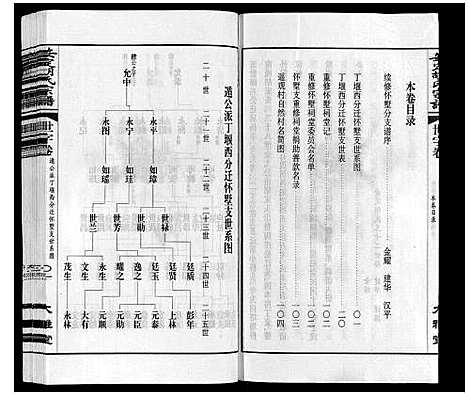 世字卷
本卷目录
大雅堂
本卷目录
续修怀墅分支谱序 金耀 建华 汉平
丁堰西分迁怀墅支世系图 一
丁堰西分迁怀墅支世系表 二〇
重修怀墅祠堂记
重修祠堂委员会名单
怀墅支重修祠堂捐助善款名录 一〇三
道观村自然村名简图 一〇四
道公派丁堰西分迁怀墅支世系图
二十世 二十一世 二十二世 二十三世 二十四世 二十五世
允中
永平 永宁 永图
如璋 如珪 如瑶
世禄 世勋 世芳 世兰
廷质 廷贤 廷玉 逸之 耀之 永生 文生 茂生
彭年 上林 元泰 元臣 元勋 元顺 大有 永林
世字卷
道公派丁堰西分迁怀墅支世系图
大雅堂